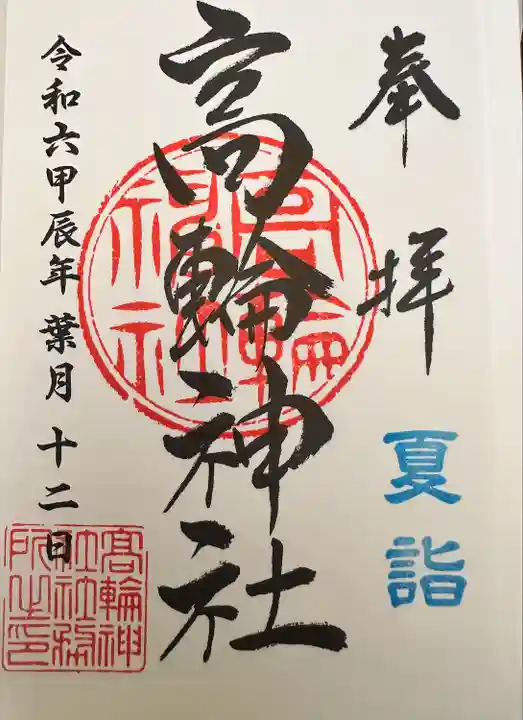 奉拝
夏詣
高輪神社
高輪神社
令和六甲辰年 葉月 十二日
高輪神
社社務
所之印